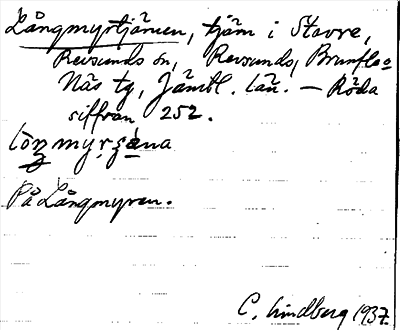 Långmyrtjärnen, tjärn i Stavre,
Revsunds sn, Revsunds, Brunflo o
Näs tg, Jämtl. län. — Röda
siffran 252.
På Långmyren.
C. Lindberg 1937.